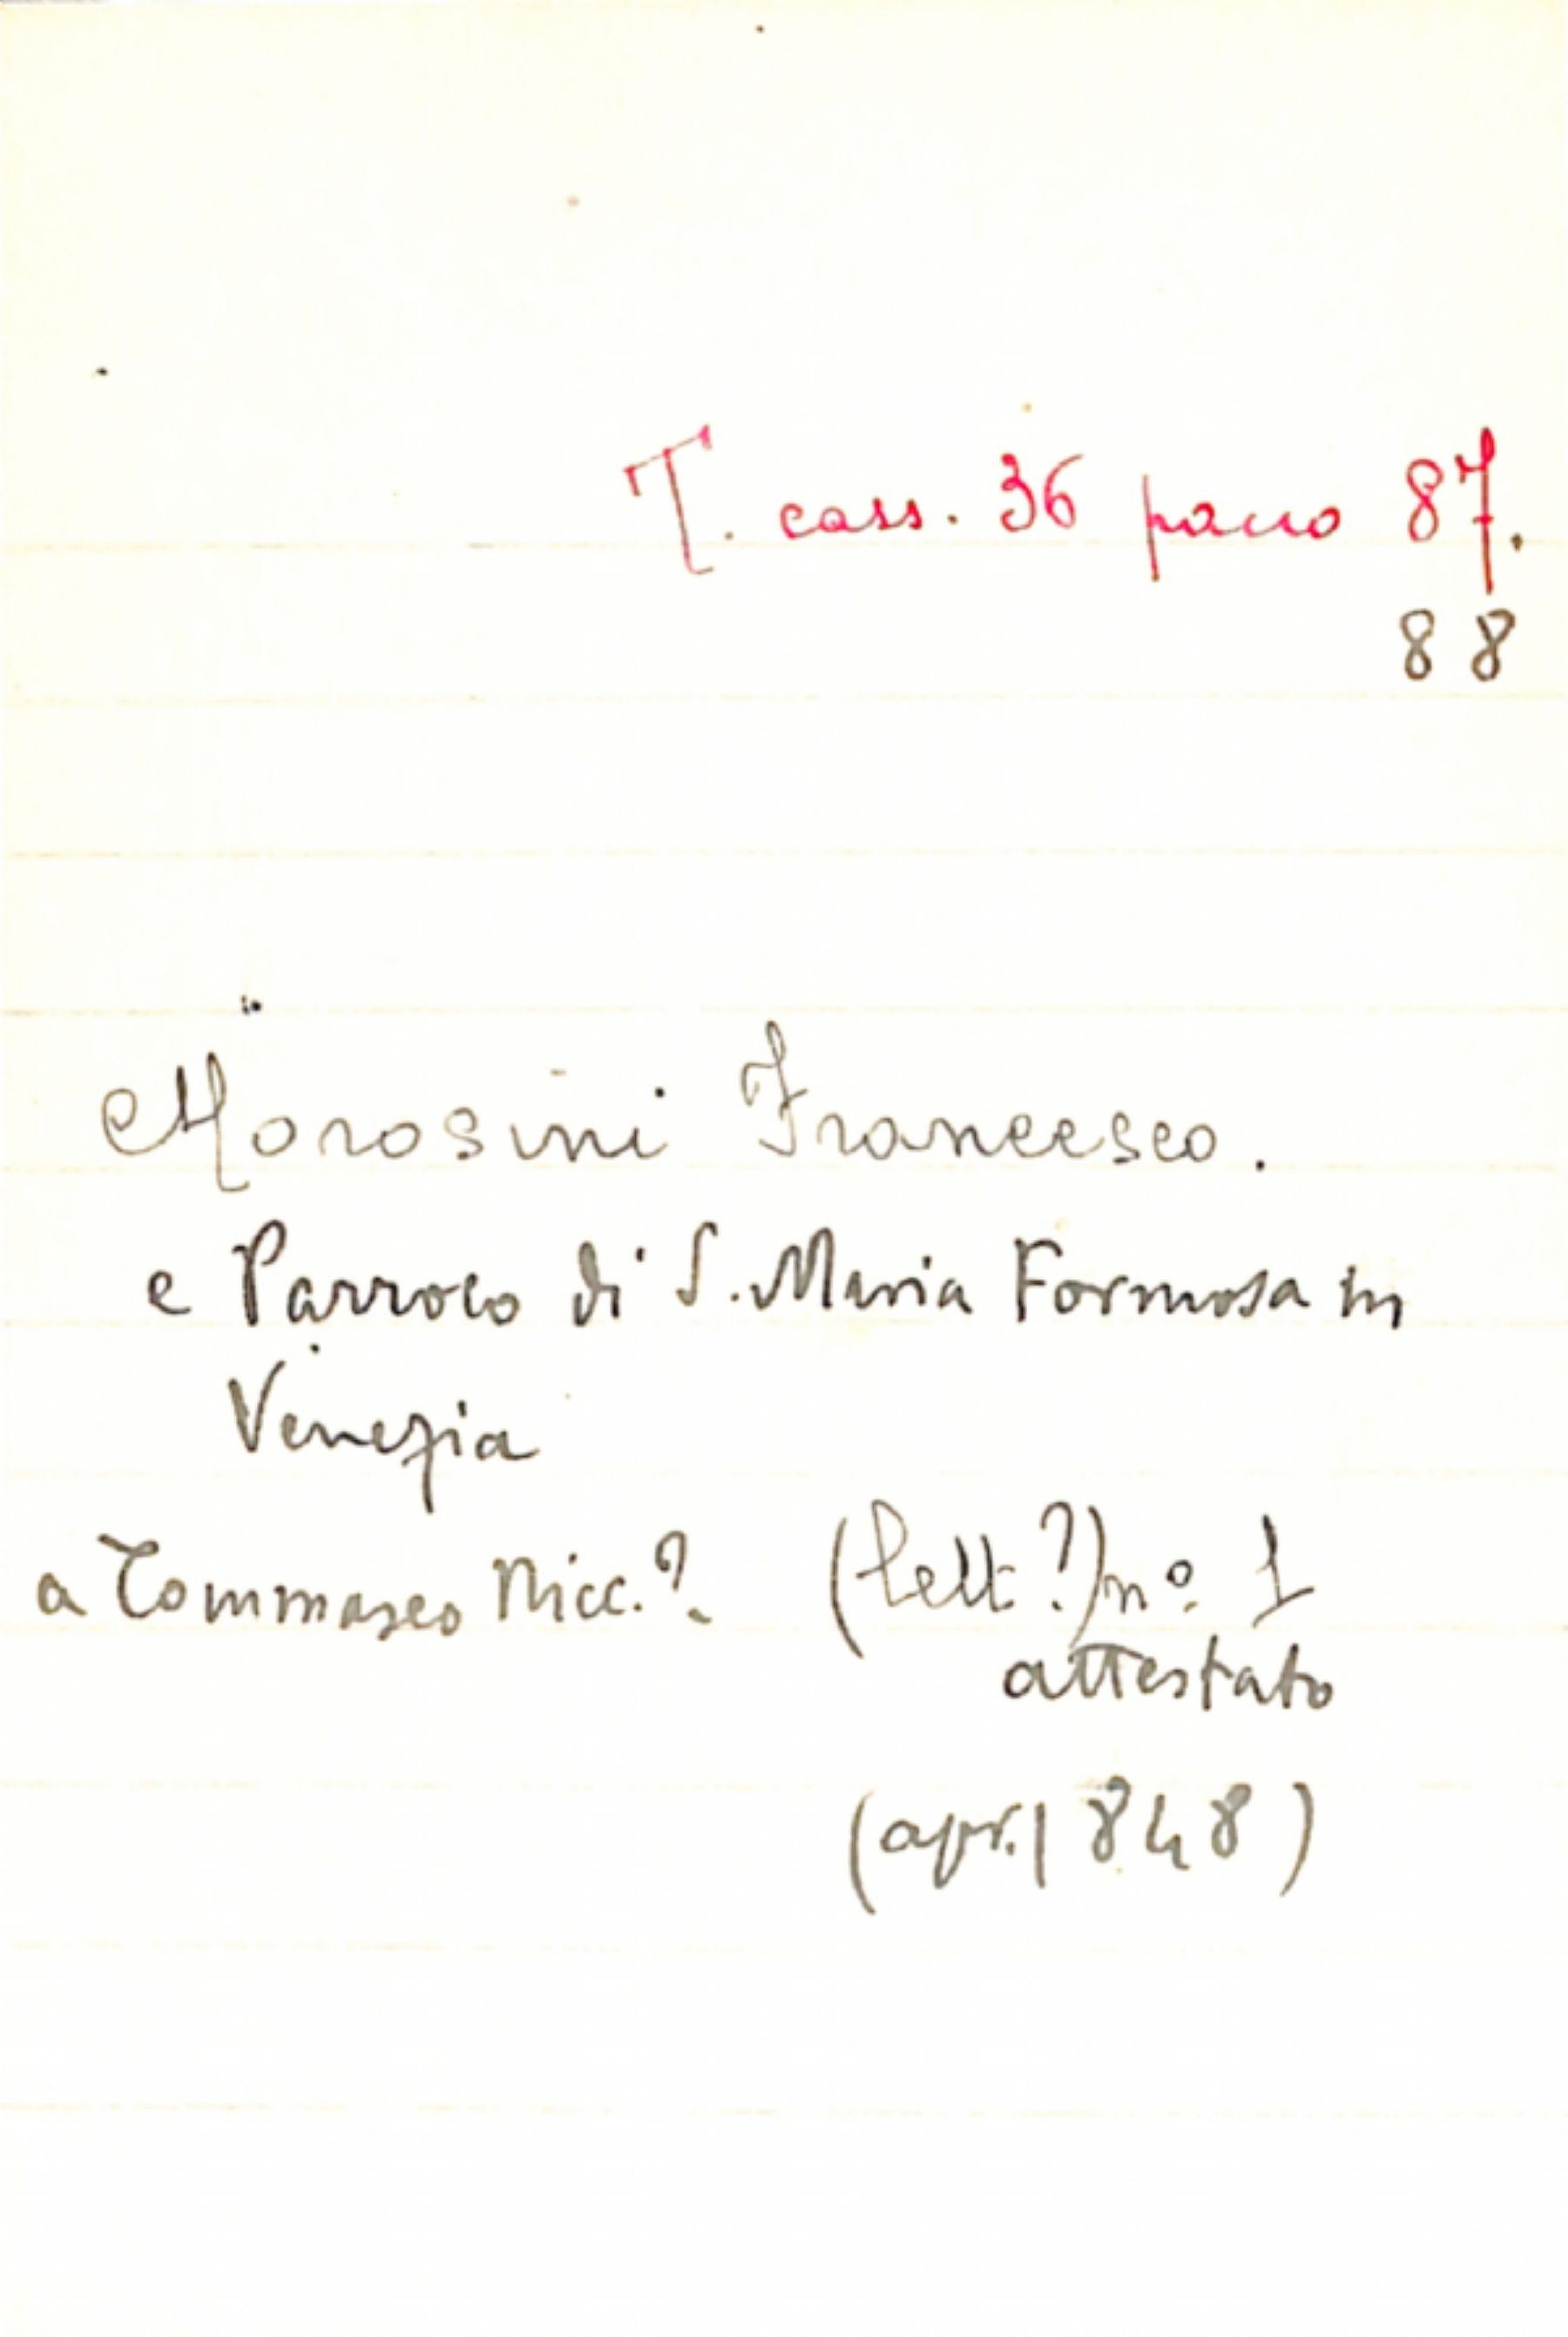 T. cass. 36 pacco 87.
88
Morosini Francesco.
e Parroco di S. Maria Formosa in
Venezia
a Tommaseo Nicc.? (lett?) nº. 1
attestato
(apr. 1848)